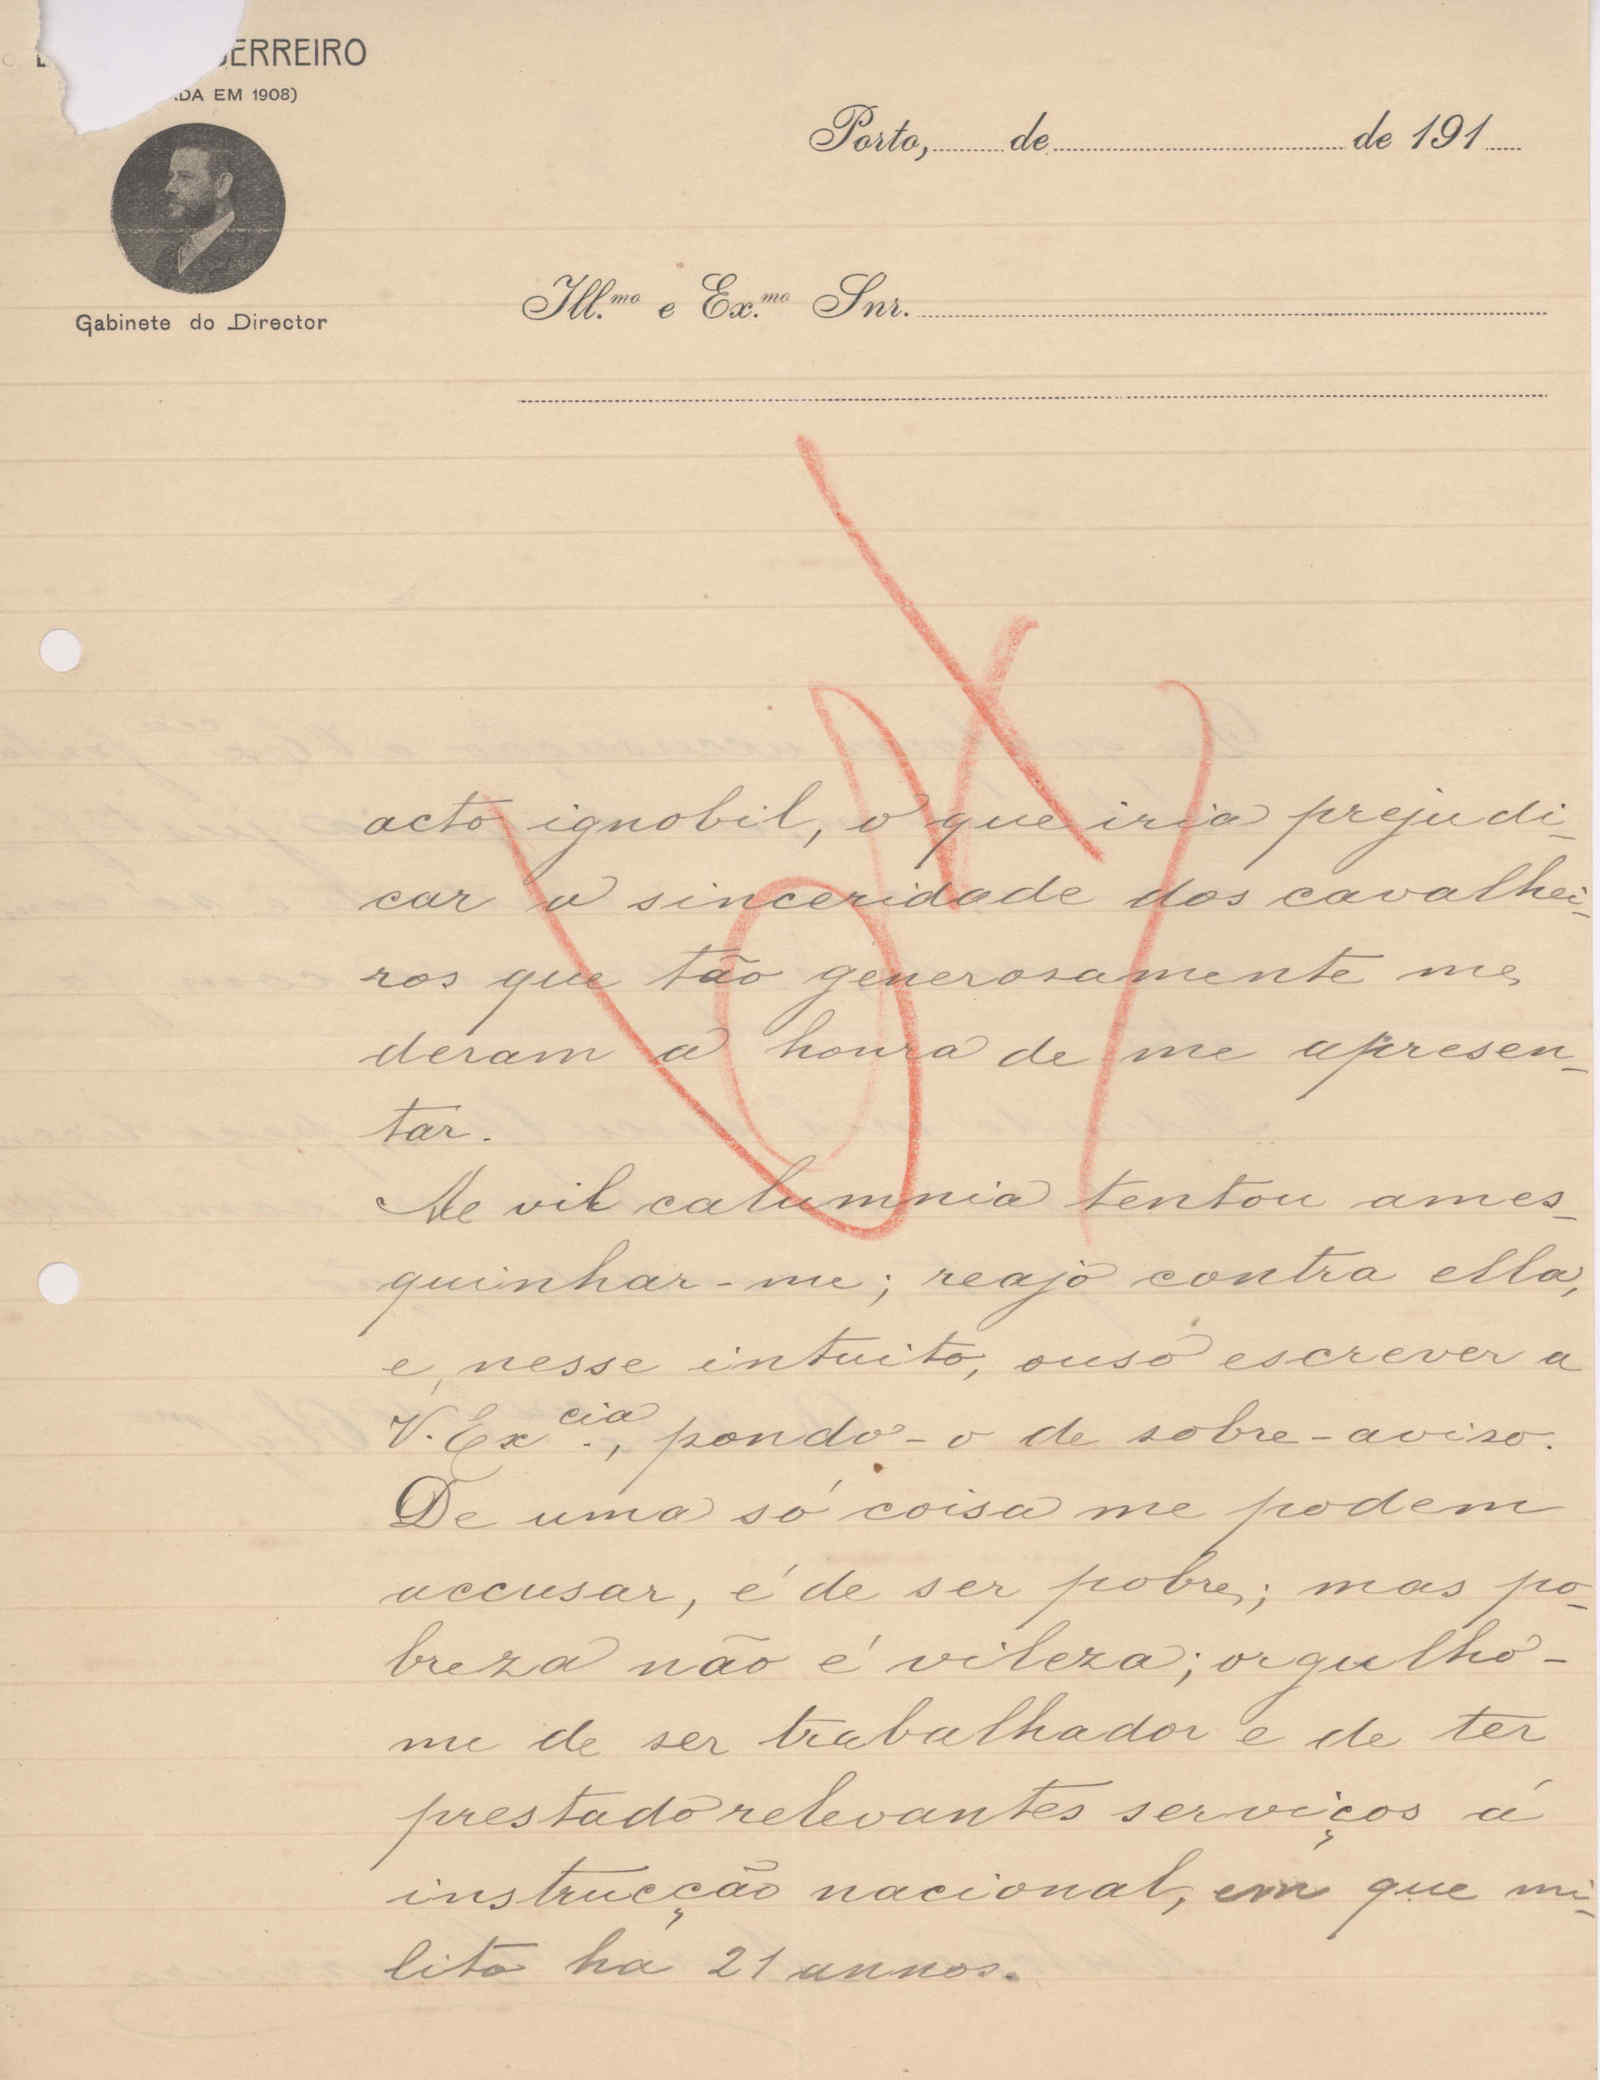 ERREIRO
DA EM 1908)
Porto, de de 191
Gabinete do Director
Ill.mo e Ex.mo Snr.
acto ignobil, o que iria prejudi-
car a sinceridade dos cavalhei-
ros que tão generosamente me
deram a honra de me apresen-
tar.
Me vil calumnia tentou ames-
quinhar-me; reajo contra ella,
e, nesse intuito, ouso escrever a
V. Excia., pondo-o de sobre-aviso.
De uma só coisa me podem
accusar, é de ser pobre; mas po-
breza não é vileza; orgulho-
me de ser trabalhador e de ter
prestado relevantes serviços á
instrucção nacional, em que mi-
lito ha 21 annos.